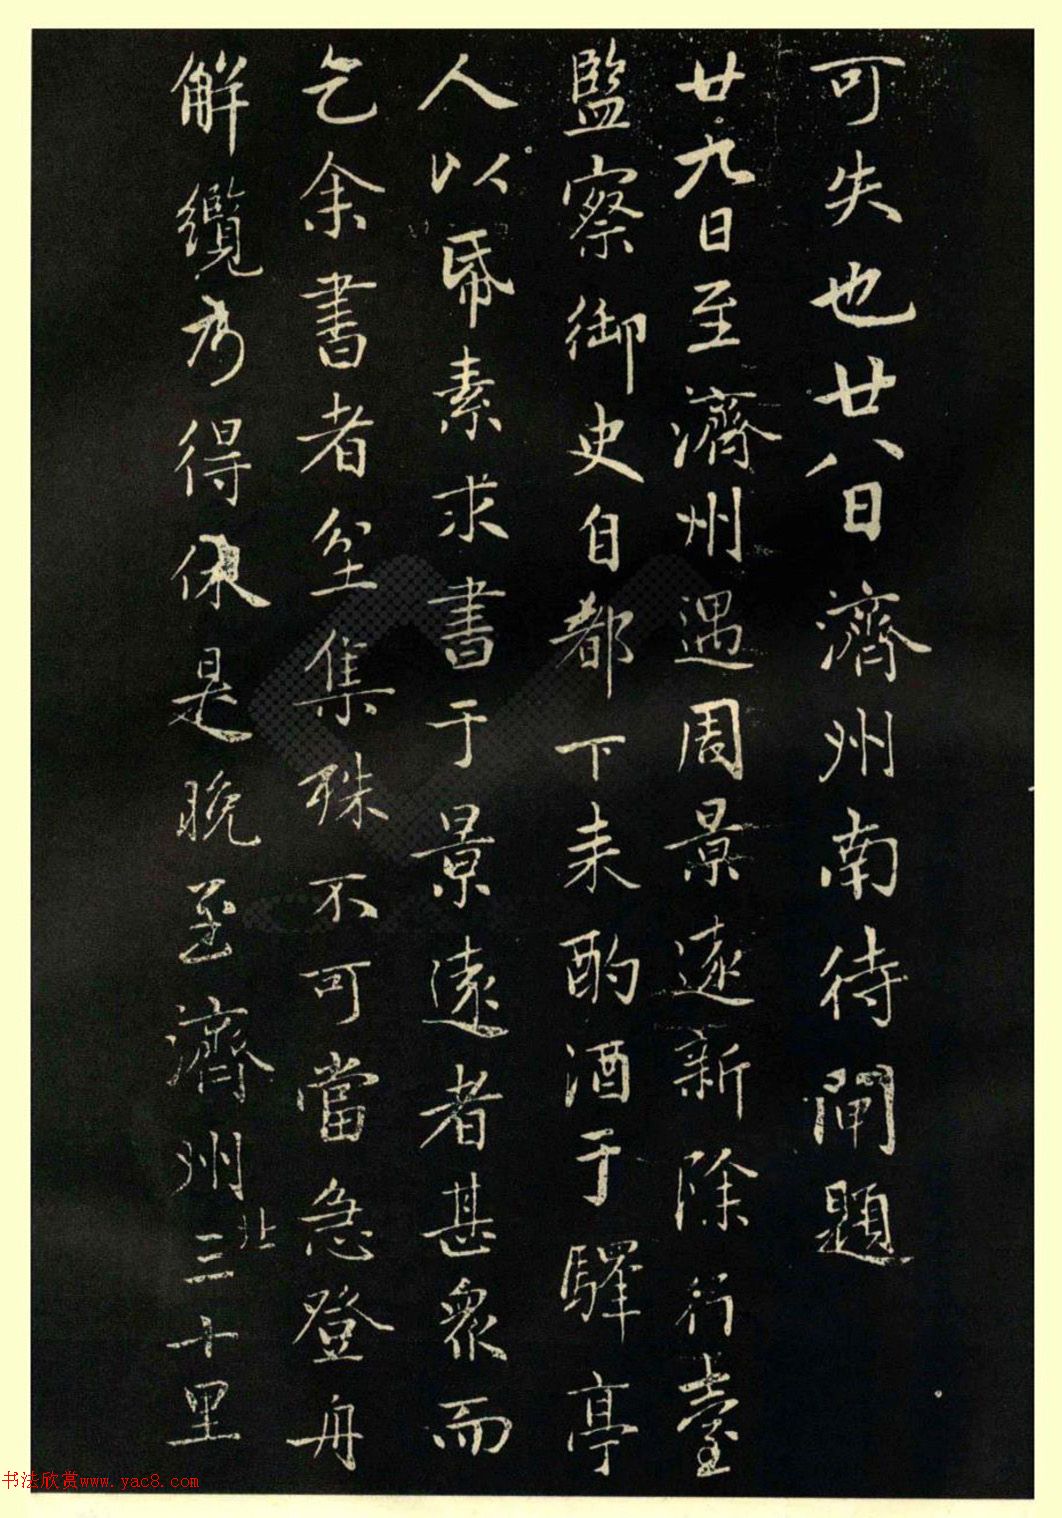 可失也廿八日濟州南待閘題
廿九日至濟州遇周景遠新除行臺
監察御史自都下来酌酒于驛亭
人以帋素求書于景遠者甚衆而
乞余書者坌集殊不可當急登舟
解纜乃得休是晚至濟州北三十里
书法欣赏www.yac8.com